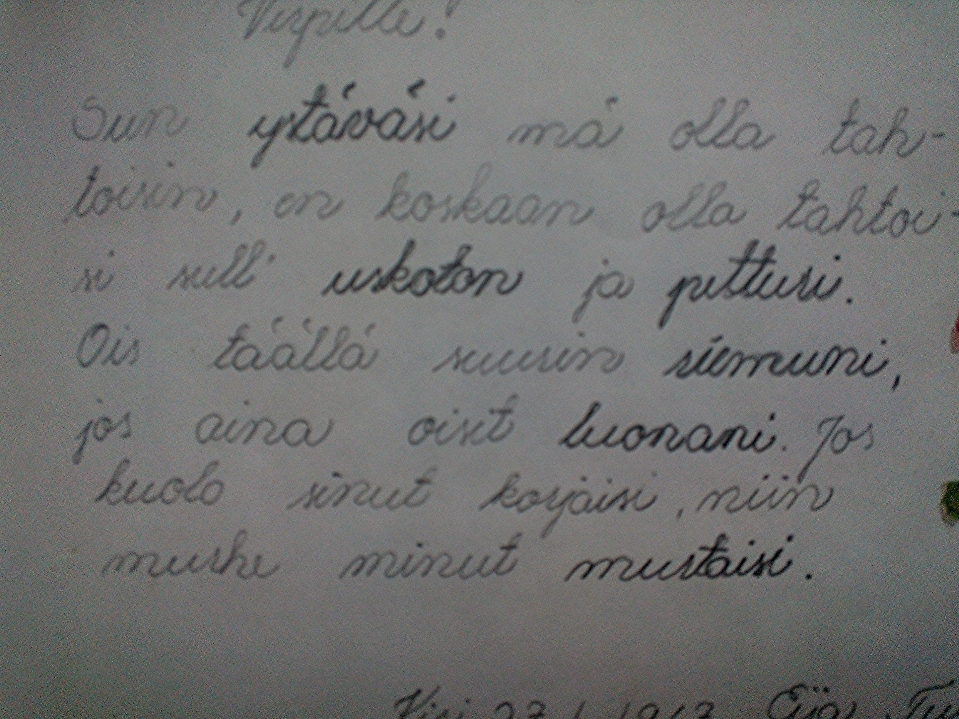 Virpille!
Sun ystäväsi mä olla tah-
toisin, en koskaan olla tahtoi-
si sull' uskoton ja petturi.
Ois täällä suurin riemuni,
jos aina oisit luonani. Jos
kuolo sinut korjaisi, niin
murhe minut mustaisi.